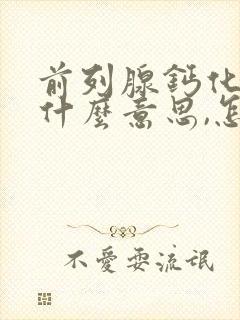 前列腺鈣化
什麼意思,怎
不愛耍流氓